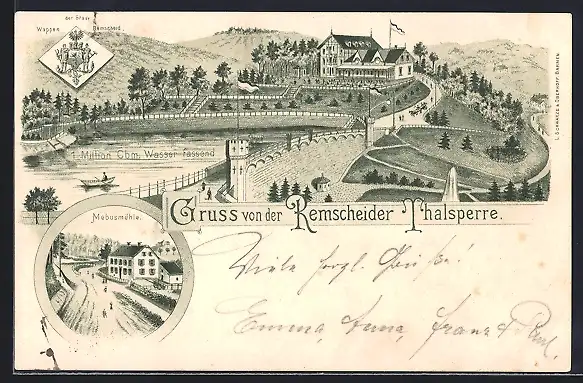 der Stadt
Wappen Remscheid.
1 Million Cbm. Wasser fassend
L. SCHWARTZE & OBERHOFF, BARMEN.
Gruss von der Remscheider Thalsperre.
Mebusmühle.
Viele herzl. Grüße!
Emma, Anna, Franz & Paul.